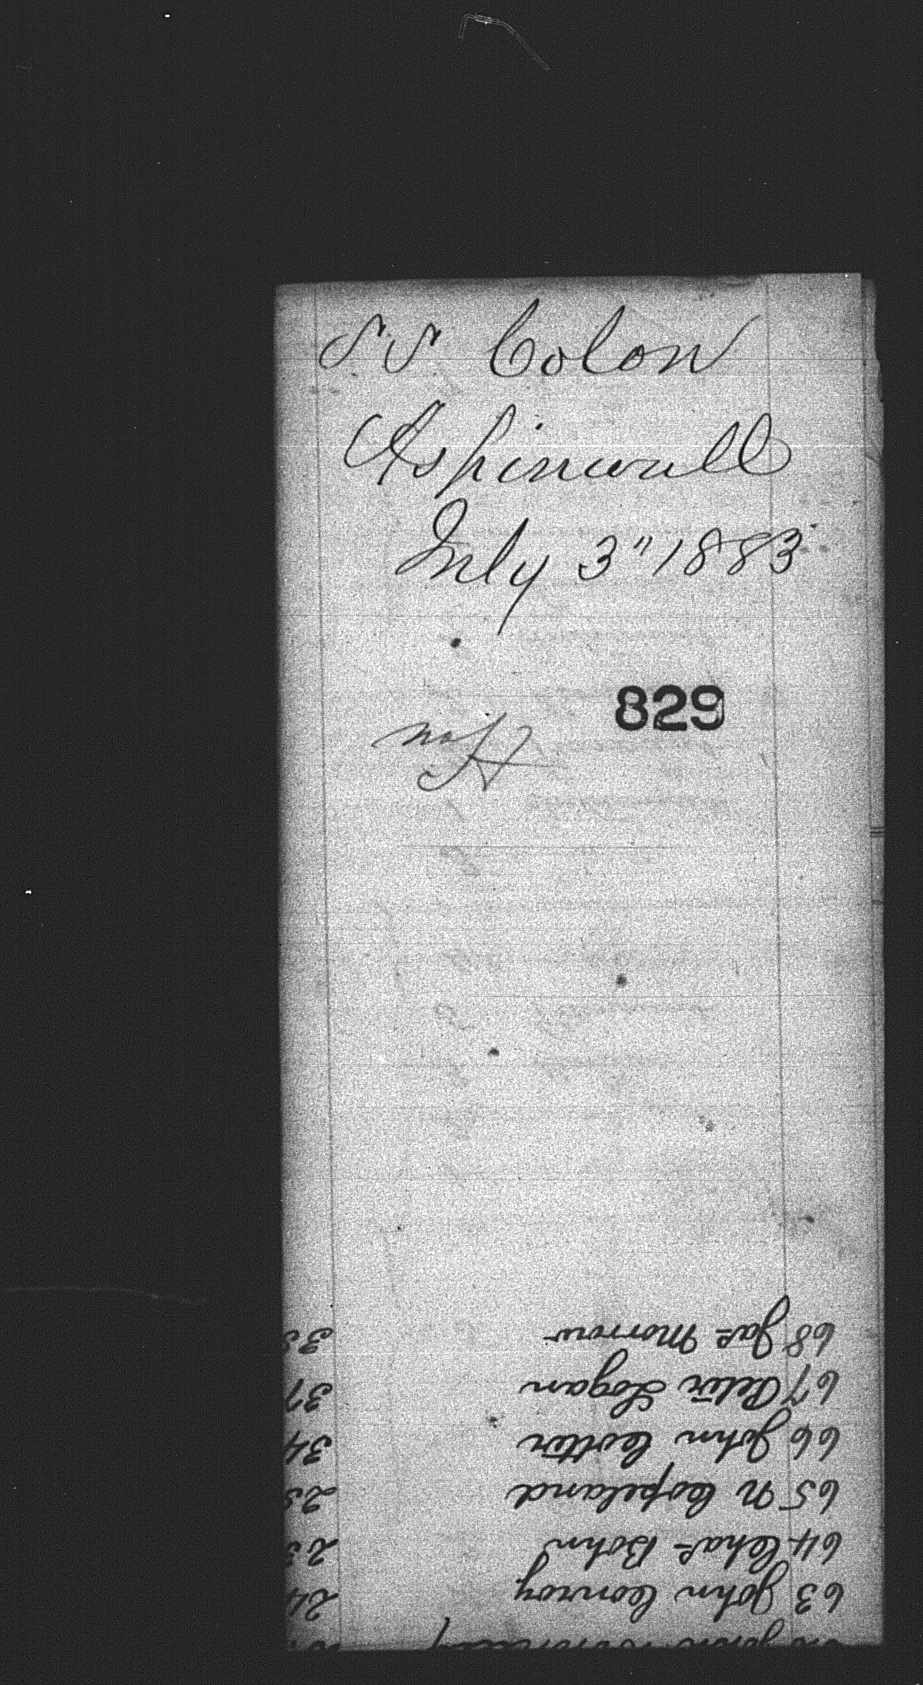 SS Colon
Aspinwall
July 3" 1883
829
63 John Conroy 24
64 Chas Bohn 23
65 N Copeland 25
66 John Cotter 34
67 Peter Logan 37
68 Jas Morrow